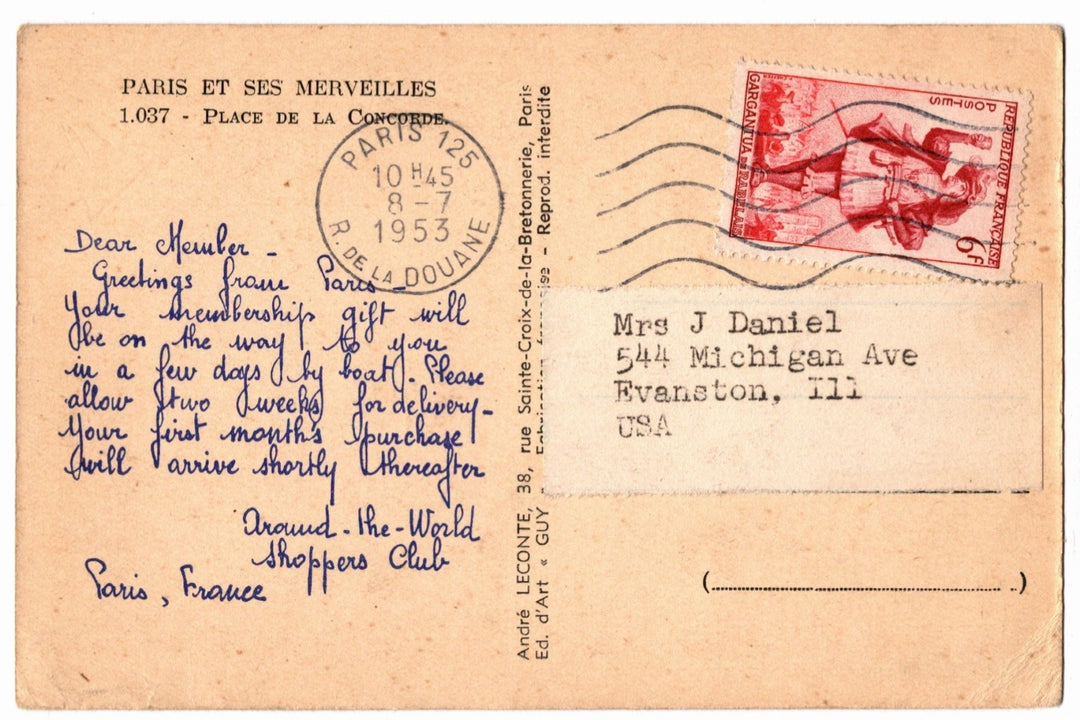 PARIS ET SES MERVEILLES
1.037 - PLACE DE LA CONCORDE.
PARIS 125
10 H 45
8 - 7
1953
R. DE LA DOUANE
Dear Member -
Greetings from Paris -
Your membership gift will
be on the way to you
in a few days by boat. Please
allow two weeks for delivery -
Your first month's purchase
will arrive shortly thereafter
Around-the-World
Shoppers Club
Paris, France
André LECONTE, 38, rue Sainte-Croix-de-la-Bretonnerie, Paris
Ed. d'Art « GUY - Reprod. interdite
REPUBLIQUE FRANÇAISE
POSTES
6F
GARGANTUA DE RABELAIS
Mrs J Daniel
544 Michigan Ave
Evanston, Ill
USA
(.......................................)